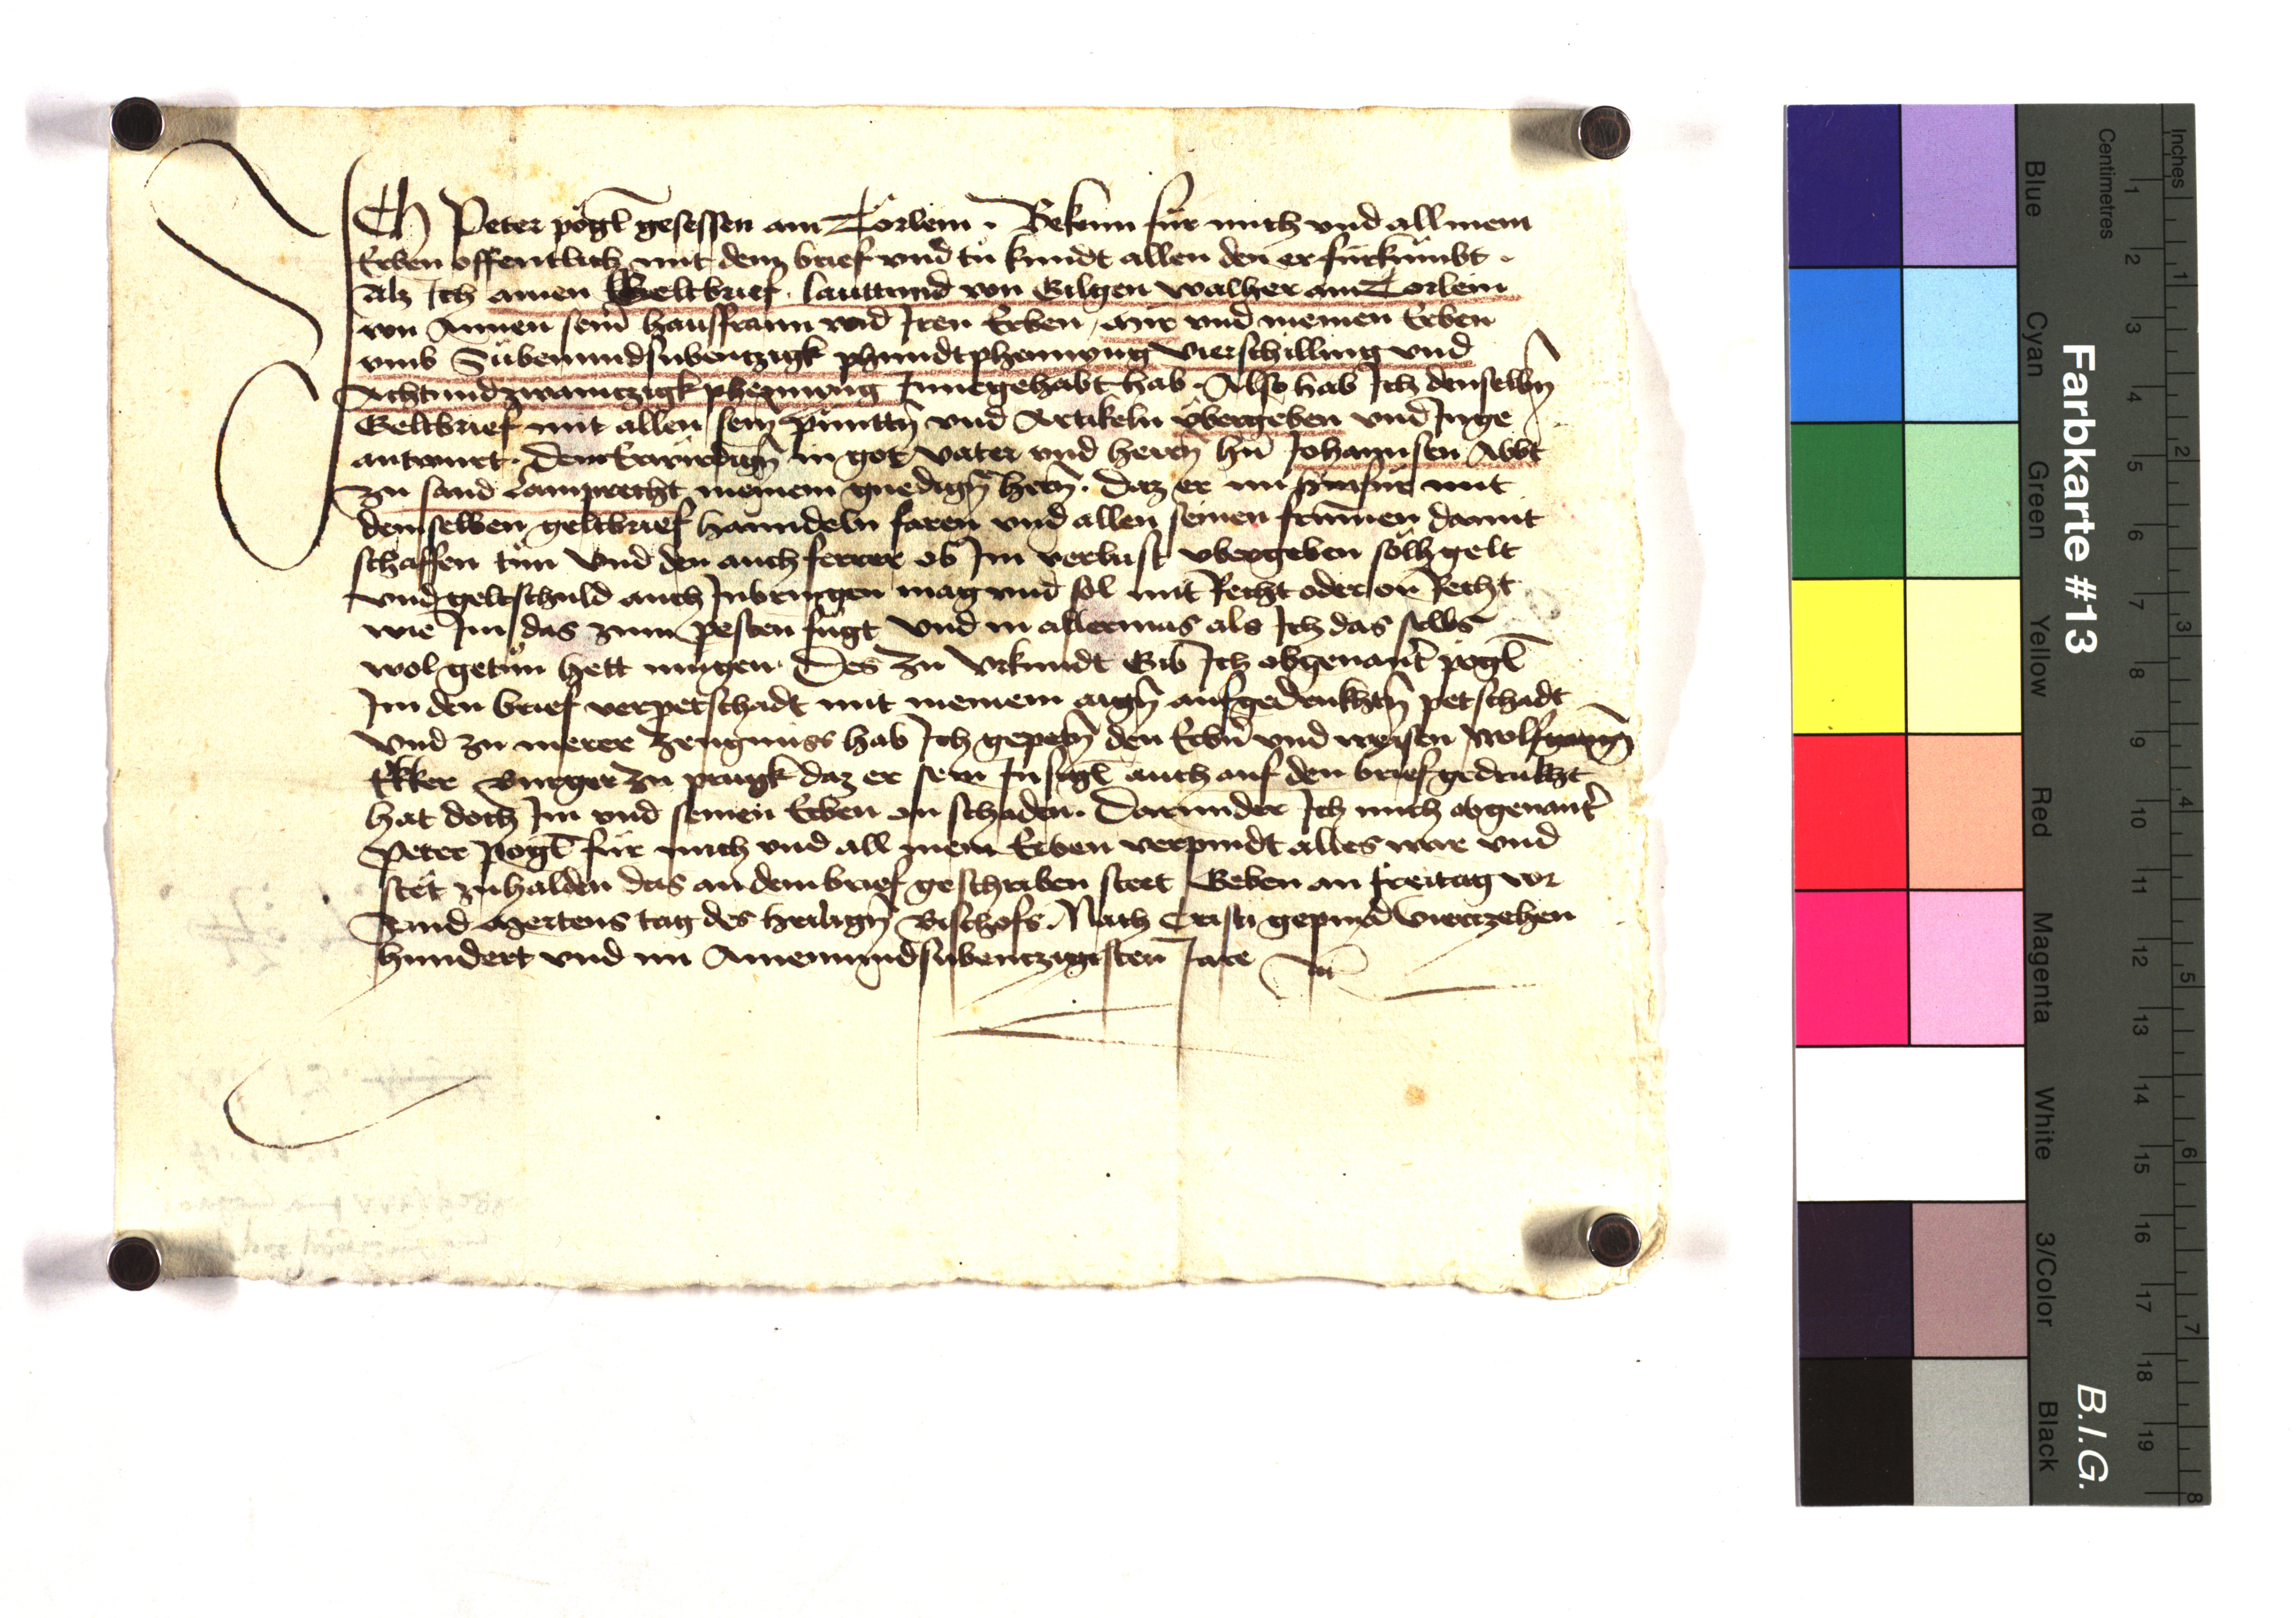 Ich Peter pögl gesessen am Torlein . Bekenn für mich vnd all mein
Erben offentlich mit dem brief vnd tu kundt allen den er fürkumbt .
Als Ich ainen Geltbrief lauttund von Gilgen walher am Torlein
von Annen seinr hausfraun vnd Iren Erben , mir vnd meinen Erben
vmb Sibenundsibentzigk phundt phenning vierschilling vnd
Achtundzwaintzigk phenning Innegehabt hab . Also hab Ich denselbn
Geltbrief mit allen sein punttn vnd Artikeln übergeben vnd Inge
antwurt . dem Erwirdign in got vater vnd herrn hn Johannsen Abbt
zu sand Lamprecht meinem gnedign hern . daz er nu hinfür mit
demselben geltbrief hanndeln faren vnd allen seinen frummen damit
schaffen tun vnd den auch ferrer ob Im verlust vbergeben sölh gelt
vnd geltschuld auch Inbringen mag vnd sol mit Recht oder on Recht
wie Im das zum pesten fügt vnd in allermas als Ich das selbs
wol getun hett mugen . Des zu vrkundt Gib Ich obgenantr pogl
Im den brief verpetschadt mit meinem aign aufgedrukhtn petschadt
vnd zu merer zeugnuss hab Ich gepetn den Erbn vnd weisen Wolfgangn
Ekker Burger zu prugk daz er sein Insigl auch auf den brief gedrukht
hat doch Im vnd seinen Erben on schaden . Darunder Ich mich obgenantr
Peter pögl für mich vnd all mein Erben verpindt alles war vnd
stet zuhalden das an dem brief geschriben steet Geben an freitag vor
Sand Mertens tag des heilign Bischofs . Nach Cristi gepurd viertzehen
hundert vnd im Ainenundsibentzigisten Jare
Farbkarte #13
B.I.G.
Inches
Centimetres
1 2 3 4 5 6 7 8 9 10 11 12 13 14 15 16 17 18 19
1 2 3 4 5 6 7 8
Blue Cyan Green Yellow Red Magenta White 3/Color Black